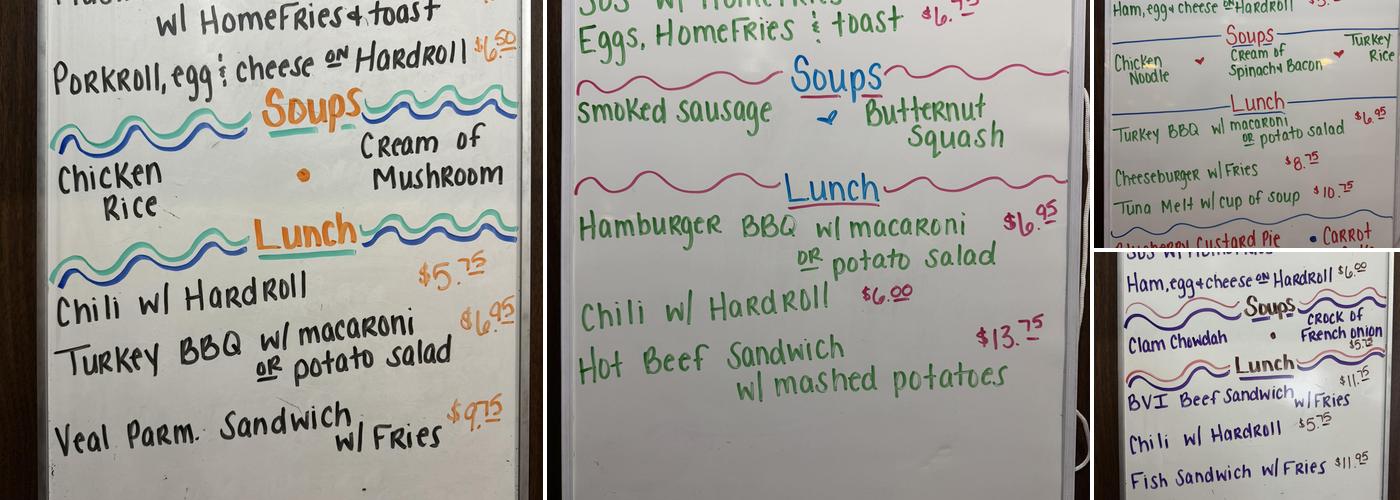 w/ HomeFries & toast
PorkRoll, egg & cheese on HardRoll $6.50
Soups
Chicken Rice
Cream of Mushroom
Lunch
Chili w/ HardRoll $5.75
Turkey BBQ w/ macaroni $6.95
or potato salad
Veal Parm. Sandwich $9.75
w/ Fries
Eggs, HomeFries & toast $6.75
Soups
smoked sausage
Butternut Squash
Lunch
Hamburger BBQ w/ macaroni $6.95
or potato salad
Chili w/ HardRoll $6.00
Hot Beef Sandwich $13.75
w/ mashed potatoes
Ham, egg & cheese on HardRoll
Soups
Chicken Noodle
Cream of Spinach & Bacon
Turkey Rice
Lunch
Turkey BBQ w/ macaroni $6.95
or potato salad
Cheeseburger w/ Fries $8.75
Tuna Melt w/ cup of soup $10.75
Custard Pie • Carrot
Ham, egg & cheese on HardRoll $6.00
Soups
Clam Chowdah
Crock of French onion
Lunch
BVI Beef Sandwich $11.75
w/ Fries
Chili w/ HardRoll $5.75
Fish Sandwich w/ Fries $11.95